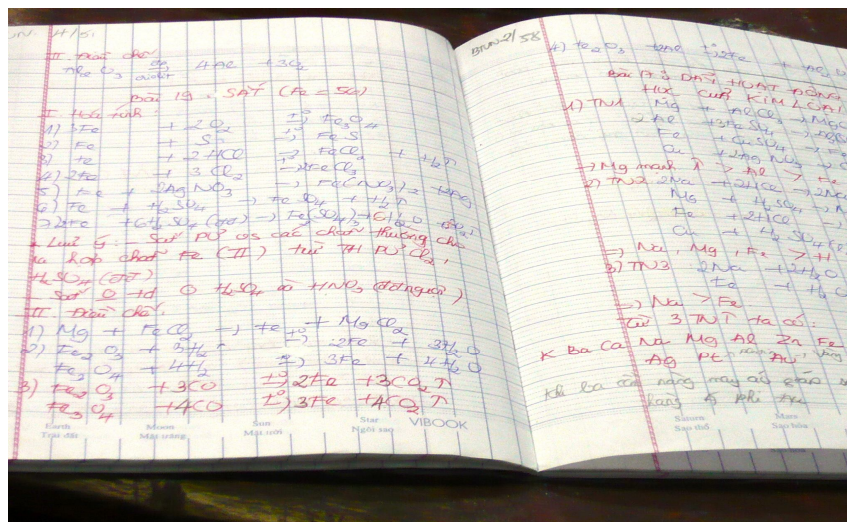 II. Điều chế
Al2O3 4Al +3O2
Bài 19. SẮT (Fe = 56)
I. Hóa tính:
1) 3Fe + 2O2 t°→ Fe3O4
2) Fe + S t°→ FeS
3) Fe + 2HCl → FeCl2 + H2↑
4) 2Fe + 3Cl2 → 2FeCl3
5) Fe + 2AgNO3 → Fe(NO3)2 + 2Ag
6) Fe + H2SO4 → FeSO4 + H2↑
7) 2Fe + 6H2SO4 (đặc) →
* Lưu ý: Sắt PƯ các chất thường cho
ra hợp chất Fe (II) trừ TH PƯ Cl2,
H2SO4 (đặc)
Sắt O td O H2SO4 và HNO3 (đặc nguội)
II. Điều chế.
1) Mg + FeCl2 → Fe + MgCl2
2) Fe2O3 + 3H2 t°→ 2Fe + 3H2O
Fe3O4 + 4H2 t°→ 3Fe + 4H2O
3) Fe2O3 + 3CO t°→ 2Fe + 3CO2↑
Fe3O4 + 4CO t°→ 3Fe + 4CO2↑
Earth Moon Sun Star VIBOOK
Trái đất Mặt trăng Mặt trời Ngôi sao
BTVN: 2/58
4) Fe2O3 + 2Al t°→ 2Fe + Al2O
Bài 17: DÃY HOẠT ĐỘNG
HỌC CỦA KIM LOẠI
1) TN1 Mg + AlCl3 → MgCl
2Al + 3FeSO4 →
Fe + CuSO4 →
Cu + 2AgNO3 →
→ Mg mạnh > Al > Fe
2) TN2 2Na + 2HCl → 2Na
Mg + H2SO4 →
Fe + 2HCl
Cu + H2SO4
→ Na, Mg, Fe > H
3) TN3 2Na + 2H2O
Fe + H2O
→ Na > Fe
Từ 3 TN ta có:
K Ba Ca Na Mg Al Zn Fe
Ag Pt Au
Khi bà cần nàng may áo
Saturn Mars
Sao thổ Sao hỏa